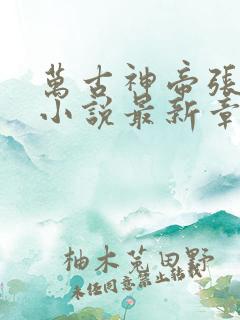 萬古神帝張
小說最新章
柚木菟田野
未經同意禁止轉載